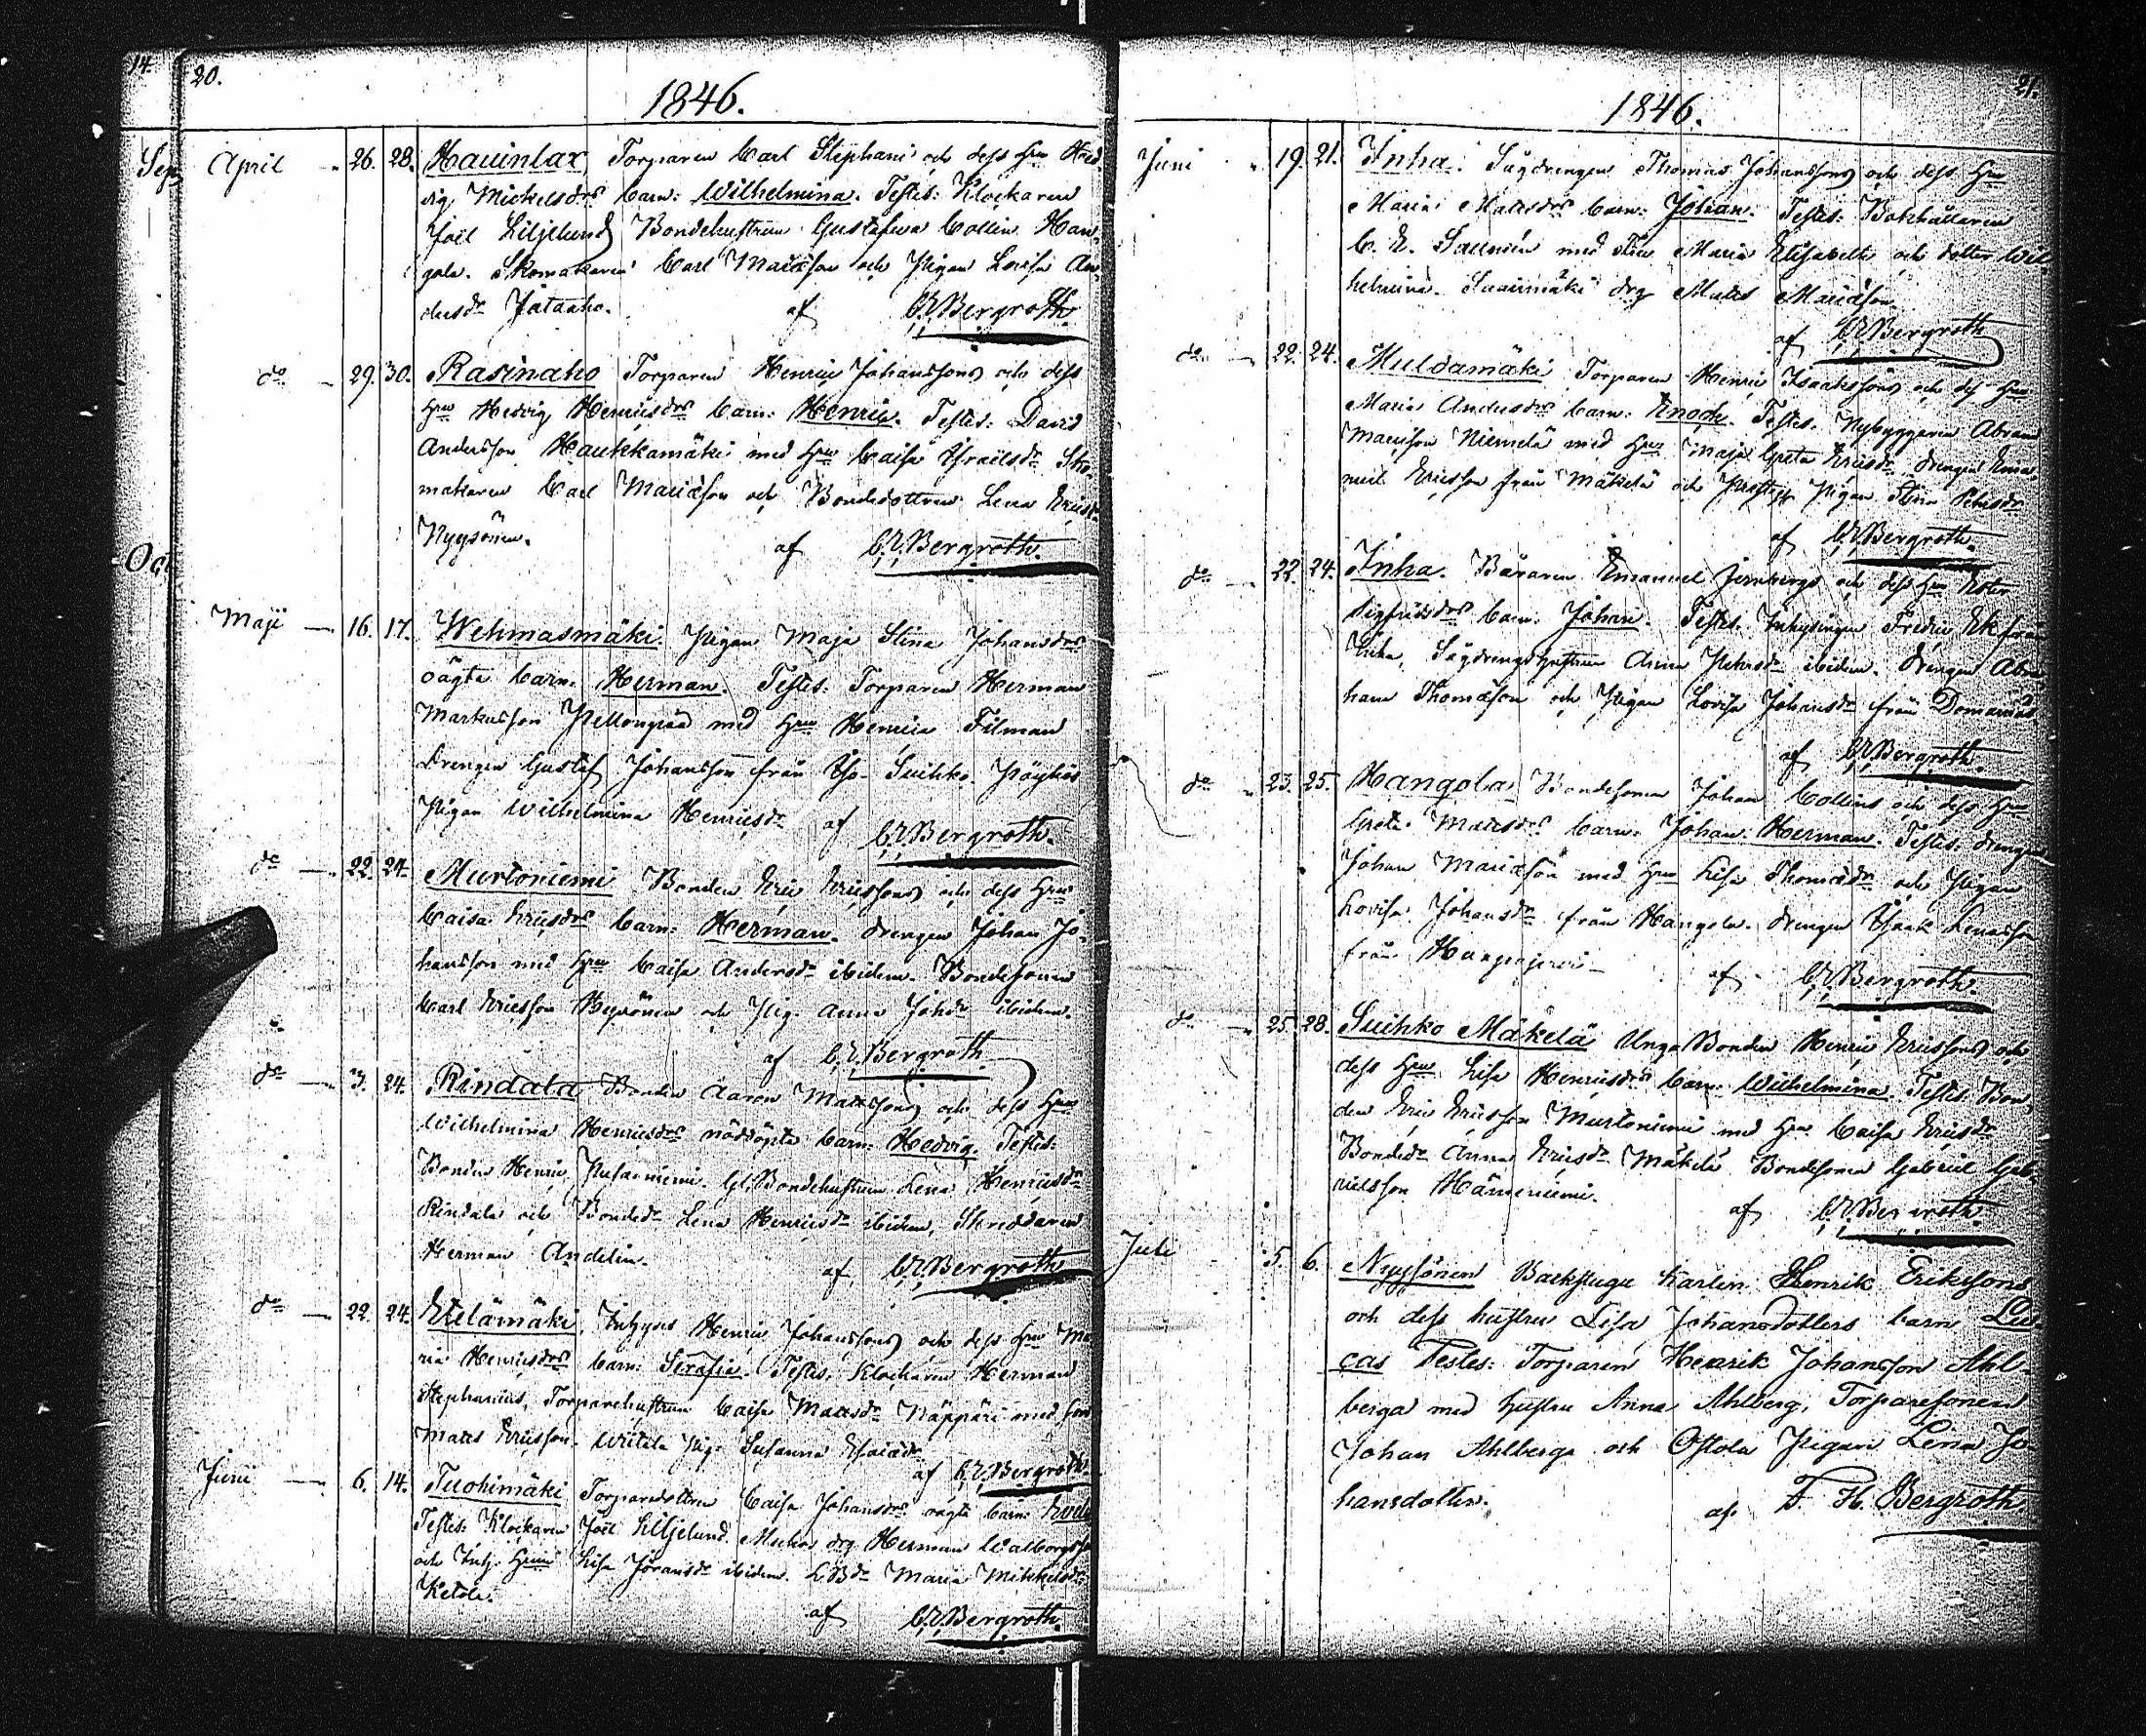 14. 20.
1846.
Sep
April 26. 28. Hauinlax, Torparen Carl Stephani och dess Hru Hed-
vig Mickelsdrs barn: Wilhelmina. Testes: Klockaren
Joël Liljelund Bondehustrun Gustafwa Collin Han-
gola. Skomakaren Carl Mariæson och Pigan Lovisa An-
dersdr Jataaho. af C. E. Bergroth.
do 29. 30. Rasinaho Torparen Henric Johanssons och dess
Hru Hedvig Henricsdrs barn: Henric. Testes: David
Andersson Haukkamäki med Hru Caisa Israelsdr Sko-
makaren Carl Mariæson och Bondedottren Lena Ericsdr
Nyysönen. af C. E. Bergroth.
Oct
Maji 16. 17. Wehmasmäki. Pigan Maja Stina Johansdrs
oägta barn: Herman. Testes: Torparen Herman
Markusson Pellonpää med Hru Henrica Filman
Drengen Gustaf Johansson från Suihko Pöyhös
Pigan Wilhelmina Henricsdr af C. E. Bergroth.
do 22. 24. Murtoniemi Bonden Eric Ericssons och dess Hru
Caisa Ericsdrs barn: Herman. drengen Johan Jo-
hansson med Hru Caisa Andersdr ibidem. Bondesonen
Carl Ericsson Nyysönen och Pig. Anna Johdr ibidem.
af C. E. Bergroth
do 3. 24. Rindala Bonden Aaron Matssons och dess Hru
Wilhelmina Henricsdrs nöddöpta barn: Hedvig. Testes:
Bonden Henric Gl. Bondehustrun Lena Henricsdr
Rindala och Bondedr Lena Henricsdr ibidem, Skreddaren
Herman Andelin. af C. E. Bergroth
do 22. 24. Etelämäki, Inhyses Henric Johanssons och dess Hru Ma-
ria Henricsdrs barn: Serafia. Testes: Klockaren Herman
Stephanius, Torparehustrun Caisa Matsdr Näppäri med son
Mats Ericsson. Wiitala Pig. Susanna Esaiædr
af C. E. Bergroth.
Juni 6. 14. Tuohimäki Torparedottren Caisa Johansdrs oägta barn:
Testes: Klockaren Joël Liljelund. drg Herman Walborgsson
och Inh. Hru Lisa Göransdr ibidem. Maria Mickelsdr
Ketola. af C. E. Bergroth.
21.
1846.
Juni 19. 21. Inha. Sågdrengen Thomas Johanssons och dess Hru
Maria Matsdrs barn: Johan. Testes: Bokhållaren
C. E. med Fru Maria Elisabeth och dotter Wil-
helmina. Saarimäki drg Mats Mariæson.
af C. E. Bergroth
do 22. 24. Muldamäki Torparen Henric Isaakssons och dess Hru
Maria Andersdrs barn: Enoch. Testes. Nybyggaren Abram
Mariæson Niemelä med Hru Maja Greta Ericsdr. drengen Ema-
nuel Ericsson från Mäkelä och Pigan Stina Petersdr
af C. E. Bergroth.
do 22. 24. Inha. Bäraren Emanuel Jernbergs och dess Hru Ester
Sigfridsdrs barn: Johan. Testes. Inhysingen Fredric Ek från
Inha. Sågdrengshustrun Anna Petersdr ibidem. drengen Abra-
ham Thomæson och Pigan Lovisa Johansdr från Domarnäs
af C. E. Bergroth.
do 23. 25. Hangola. Bondesonen Johan Collins och dess Hru
Greta Matsdrs barn: Johan Herman. Testes. drengen
Johan Mariæson med Hru Lisa Thomædr och Pigan
Lovisa Johansdr från Hangola. drengen Isaak Lenasson
från af C. E. Bergroth.
do 25. 28. Suihko Mäkelä Unga Bonden Henric Ericssons och
dess Hru Lisa Henricsdrs barn: Wilhelmina. Testes. Bon-
den Eric Ericsson Murtoniemi med Hru Caisa Ericsdr
Bondedr Anna Ericsdr Mäkelä Bondesonen Gabriel Gab-
rielsson Hämeniemi.
af C. E. Bergroth
Juli 5. 6. Nyysönen Backstugu Karlen Henrik Eriksons
och dess hustru Lisa Johansdotters barn Lu-
cas Testes: Torparen Henrik Johansson Ahl-
berga med hustru Anna Ahlberg, Torparesonen
Johan Ahlberga och Ostola Pigan Lena Jo-
hansdotter.
af. F. H. Bergroth